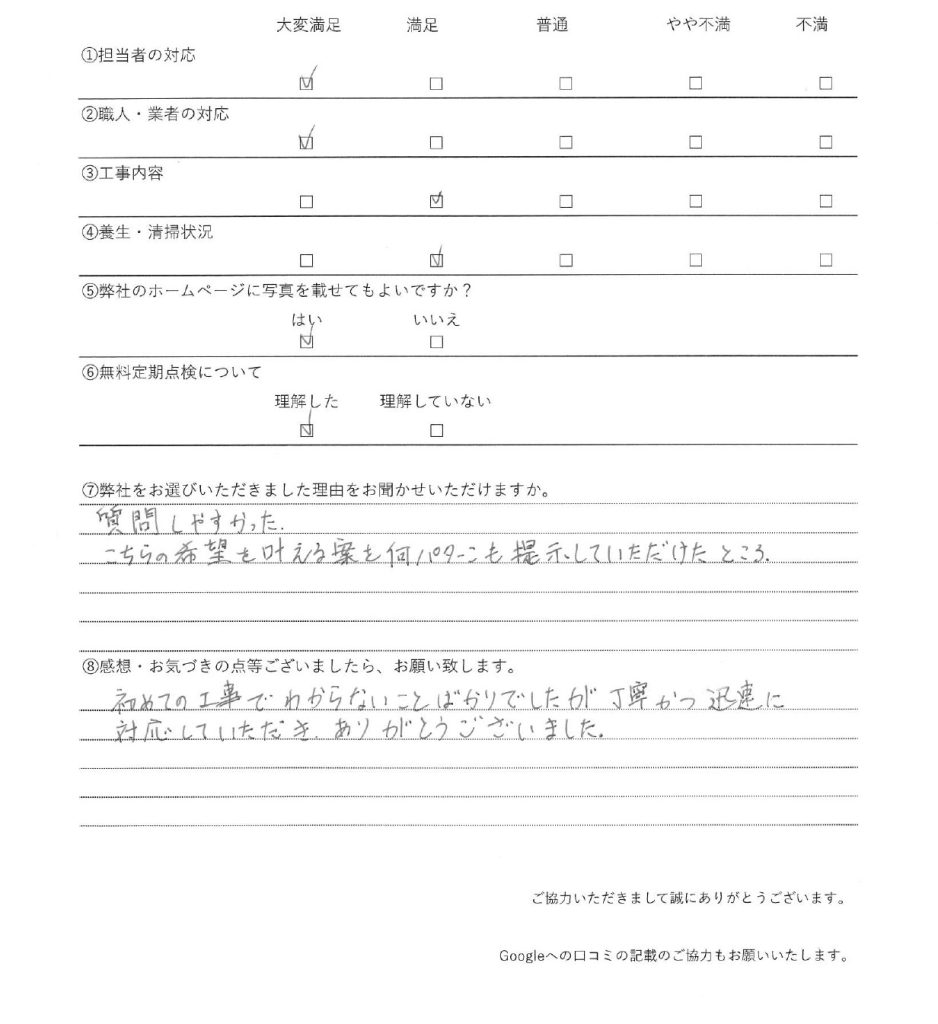 大変満足 満足 普通 やや不満 不満
①担当者の対応
☑ □ □ □ □
②職人・業者の対応
☑ □ □ □ □
③工事内容
□ ☑ □ □ □
④養生・清掃状況
□ ☑ □ □ □
⑤弊社のホームページに写真を載せてもよいですか？
はい いいえ
☑ □
⑥無料定期点検について
理解した 理解していない
☑ □
⑦弊社をお選びいただきました理由をお聞かせいただけますか。
質問しやすかった.
こちらの希望を叶える案を何パターンも提示していただけたところ.
⑧感想・お気づきの点等ございましたら、お願い致します。
初めての工事でわからないことばかりでしたが丁寧かつ迅速に
対応していただき、ありがとうございました。
ご協力いただきまして誠にありがとうございます。
Googleへの口コミの記載のご協力もお願いいたします。